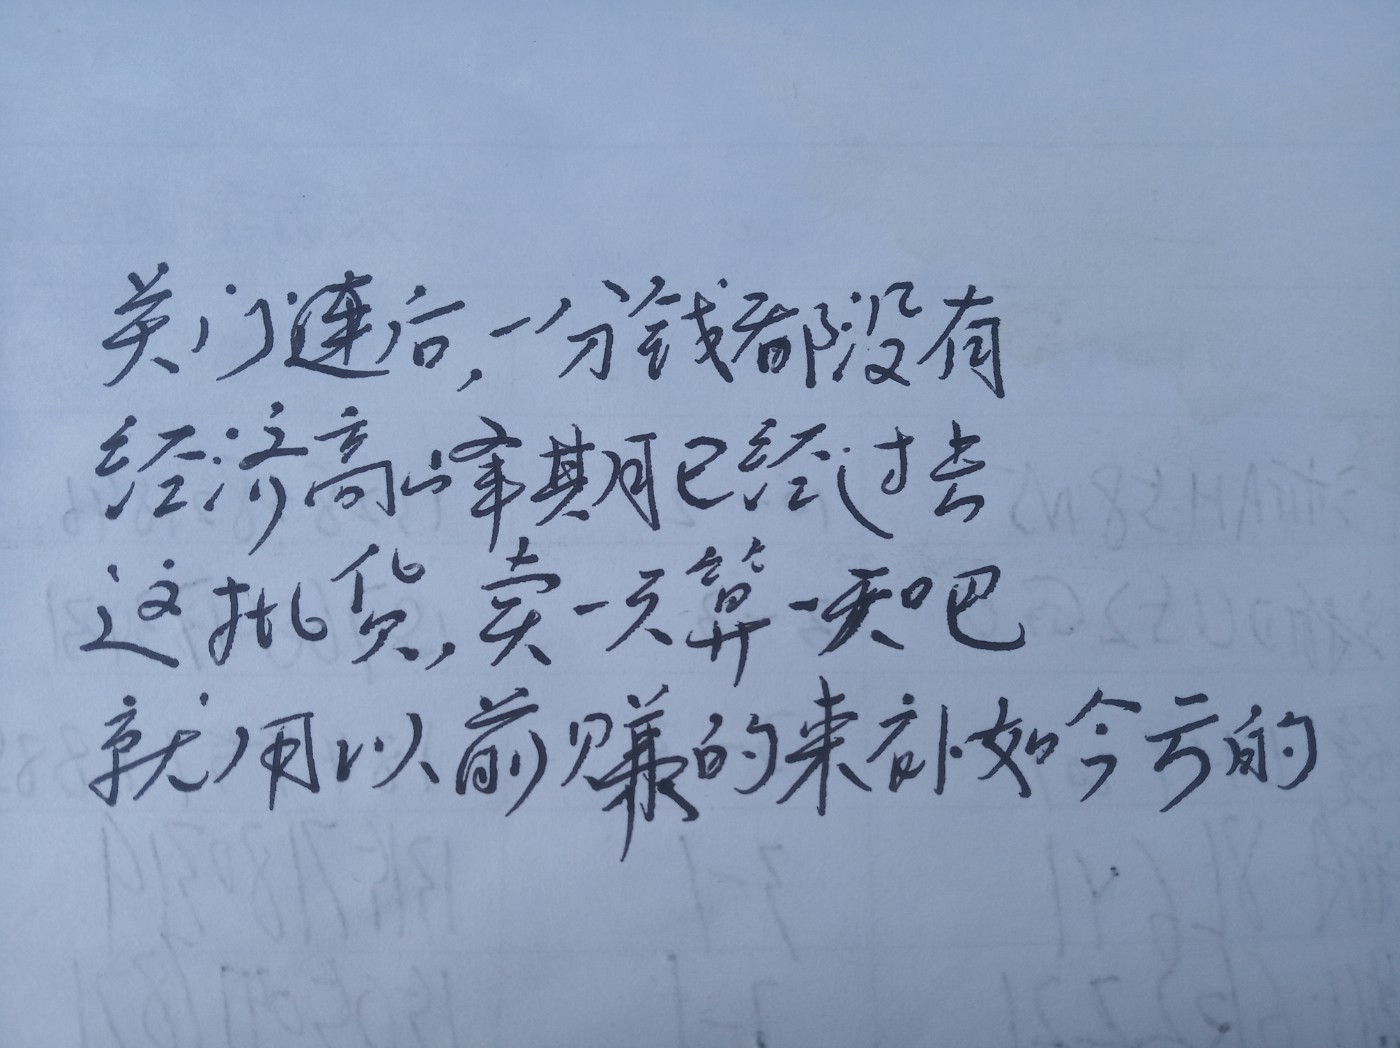 关门连后，一分钱都没有
经济高峰期已经过去
这批货，卖一天算一天吧
就用以前赚的来补如今亏的